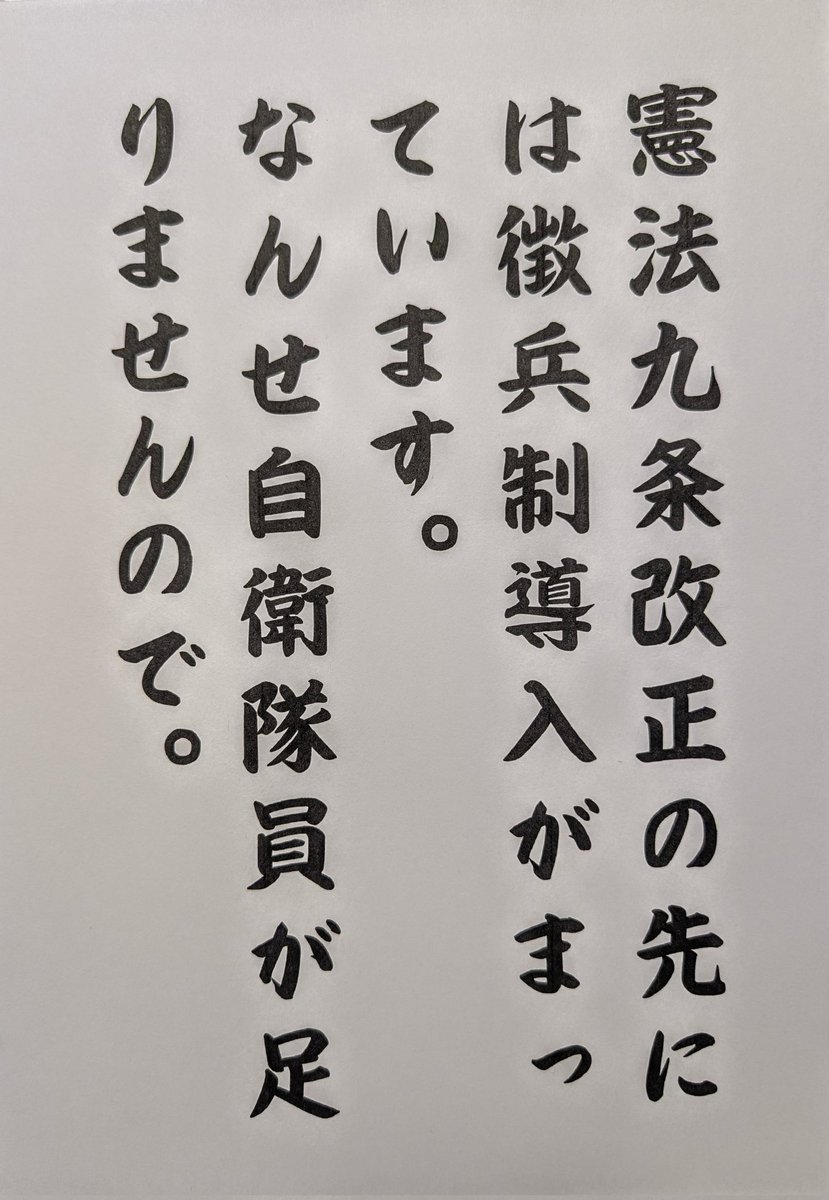 憲法九条改正の先に
は徴兵制導入がまっ
ています。
なんせ自衛隊員が足
りませんので。